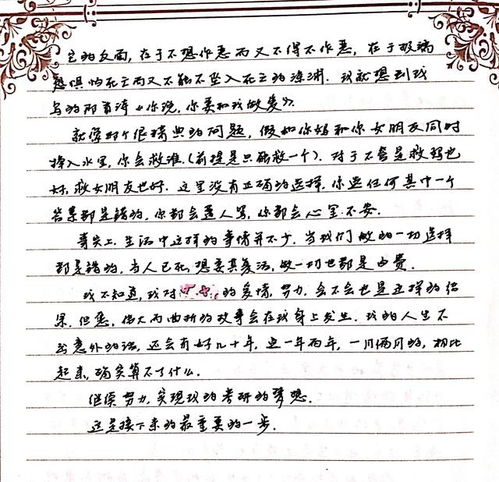 它的反面,在于不想作恶而又不得不作恶,在于极端
恐惧怕死亡而又不能不坠入死亡的深渊。我就想到我
写的那首诗《你说,你要和我做爱》。
就像那个很精典的问题,假如你妈和你女朋友同时
掉入水里,你会救谁。(前提是只能救一个)。对于不管是救妈也
好,救女朋友也好。这里没有正确的选择,你选任何其中一个
答案都是错的,你都会遭人骂,你都会心里不安。
事实上,生活中这样的事情并不少,当我们做的一切选择
都是错的,当人已死,想要其复活,做一切也都是白费。
我不知道,我对 的爱情,努力,会不会也是这样的结
果。但愿,伟大而曲折的故事会在我身上发生。我的人生不
出意外的话,还会有好几十年,这一年两年,一月俩月的,相比
起来,确实算不了什么。
但愿努力,实现我的考研的梦想。
这是接下来的最重要的一步。